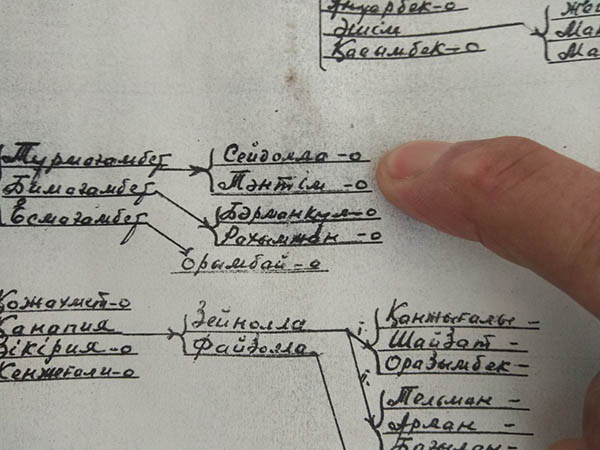 Әнуарбек-о
Әшім
Қасымбек-о
Турмағамбет
Бимағамбет
Есмағамбет
Сейдолла-о
Тәнтім-о
Бәрманкул-о
Рахымжан-о
Орымбай-о
Қожахмет-о
Канапия
Зікірия-о
Кенжеғали-о
Зейнолла
Файзолла
Қанжығалы -
Шайзат -
Оразымбек -
Тельман -
Арман -
Бағылан -